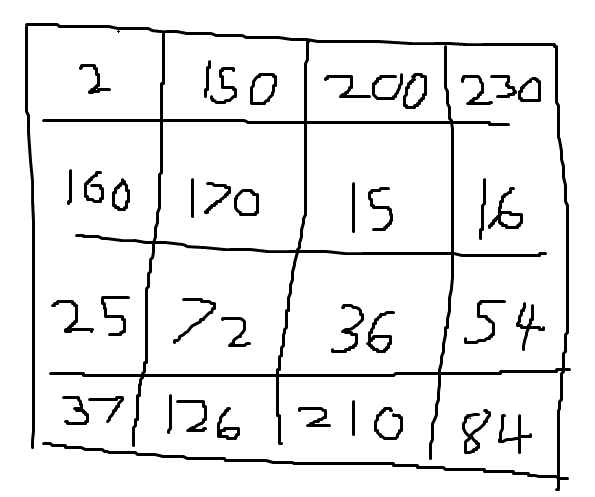 2 150 200 230
160 170 15 16
25 72 36 54
37 126 210 84